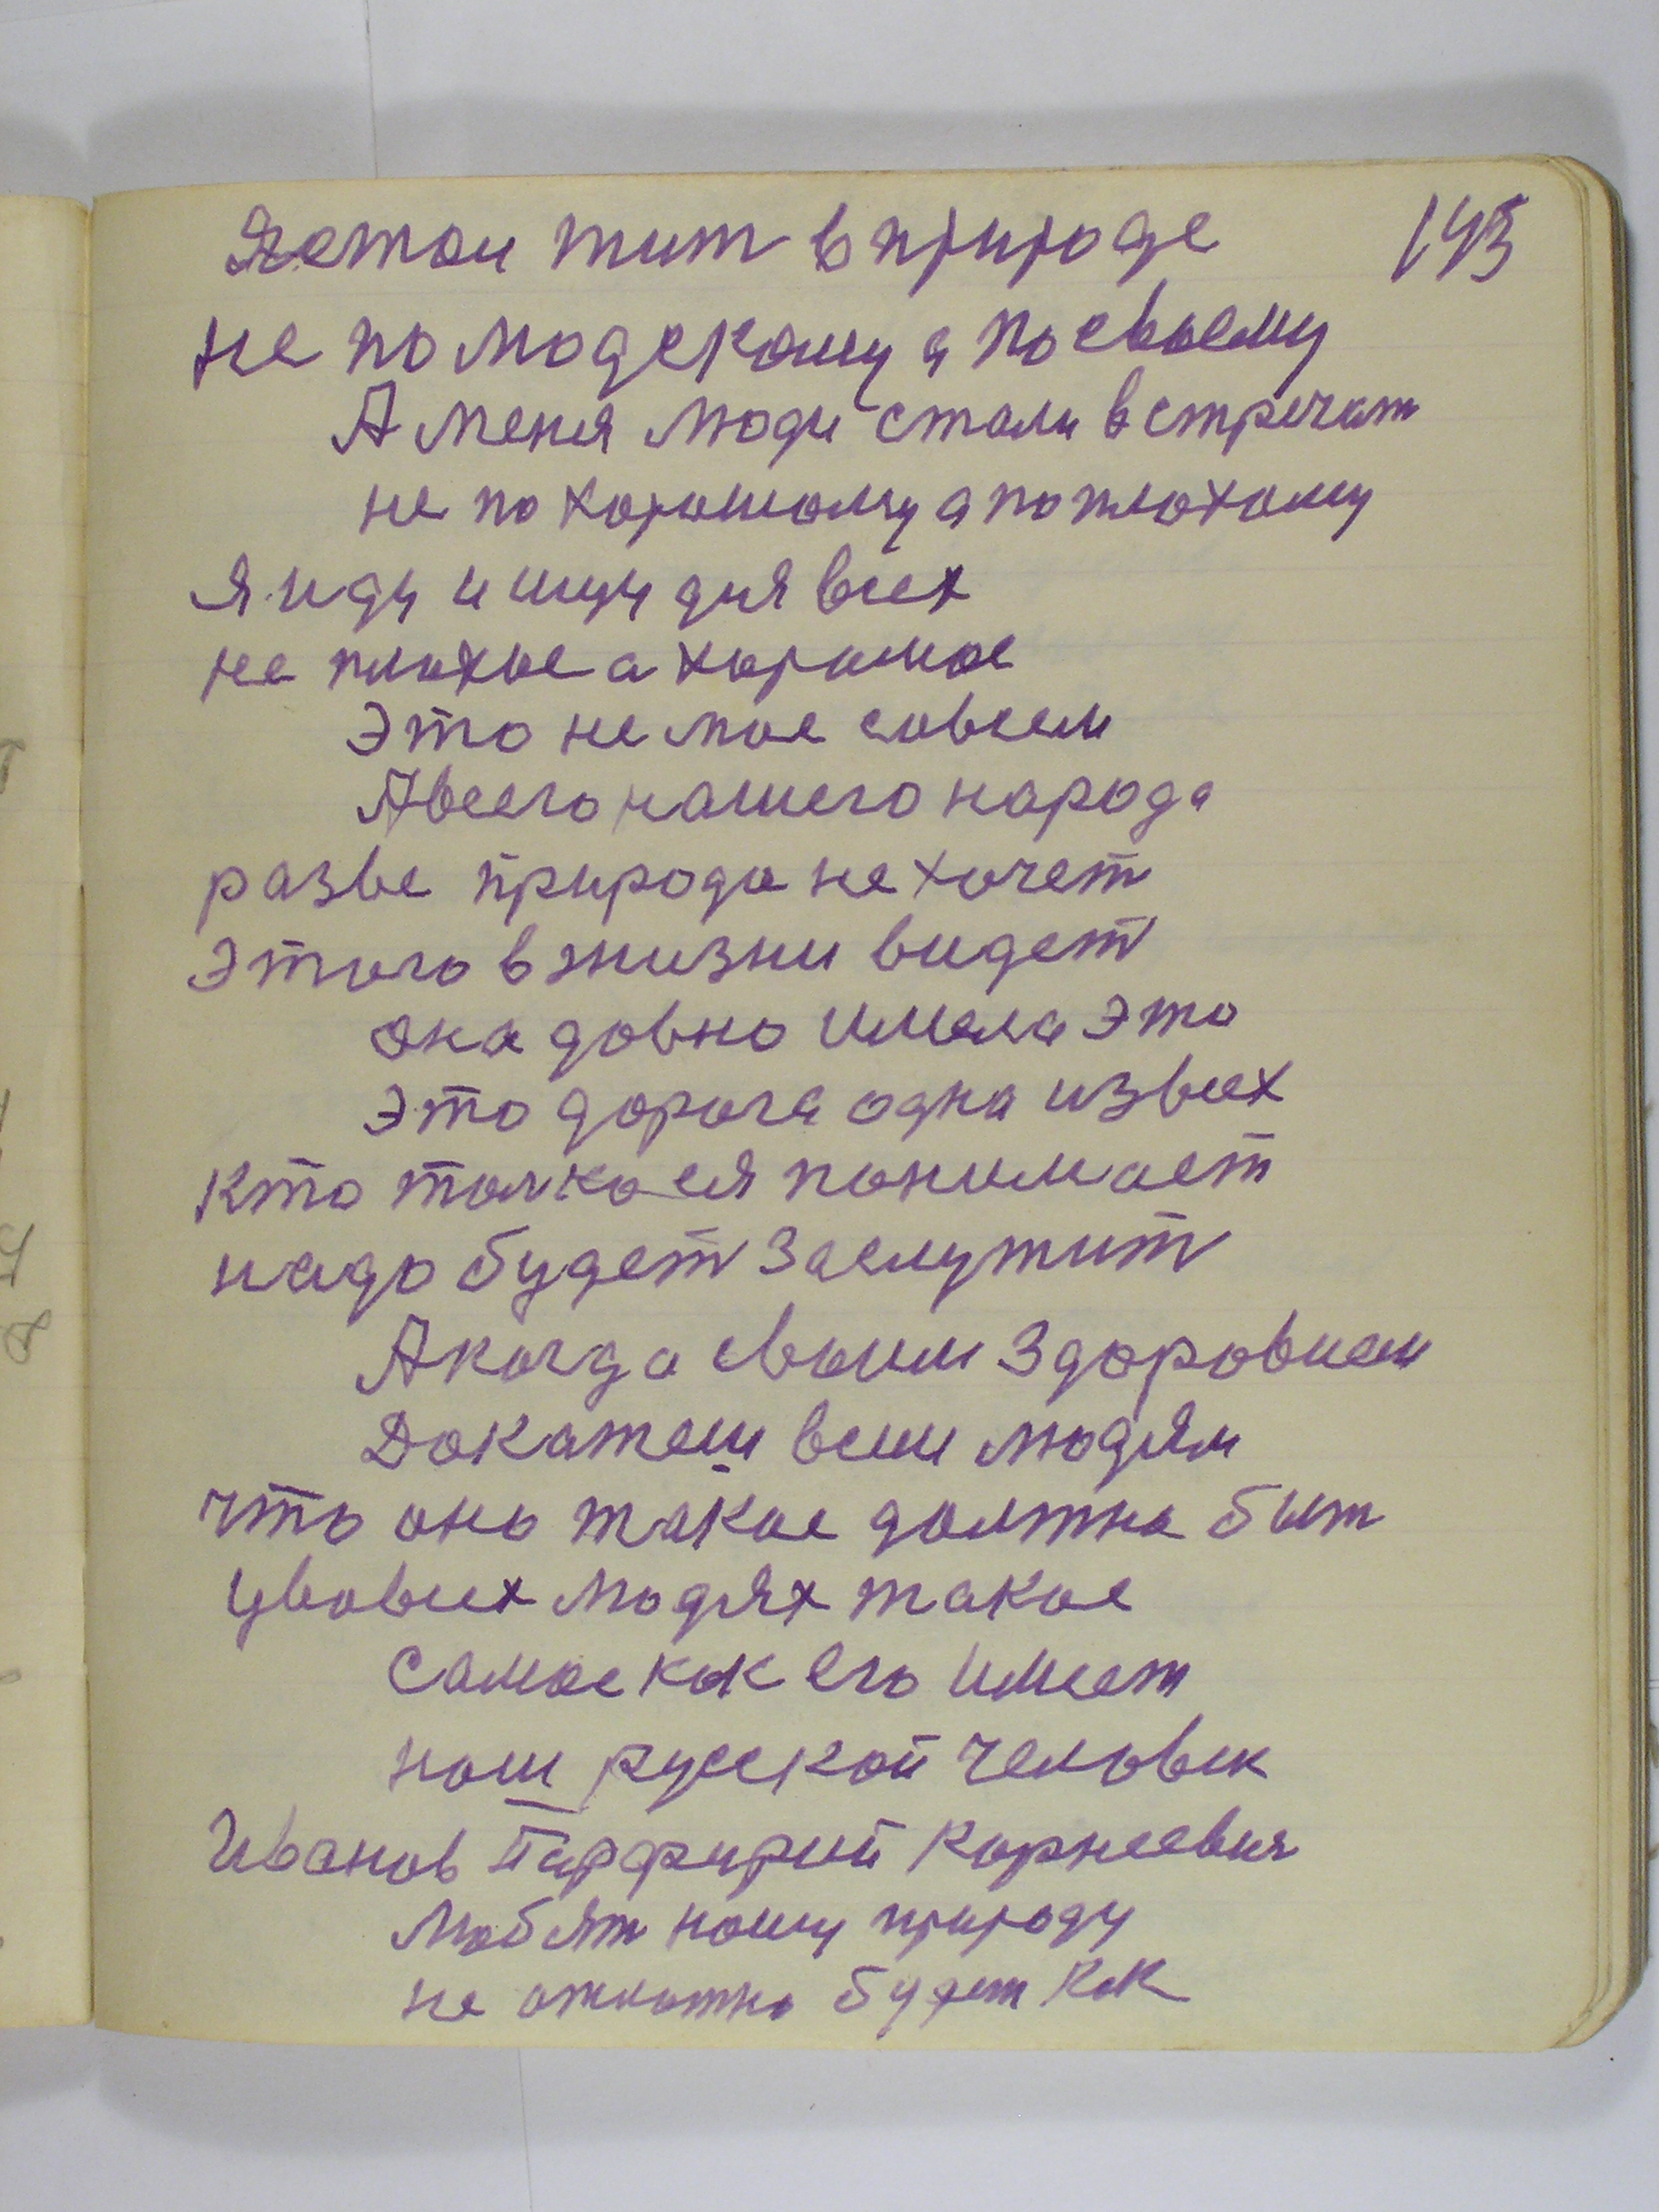 Я стал жит в природе 143
не по людскому а посвоему
А меня люди стали встречат
не по хорошому а поплохому
Я иду и ищу для всех
не плохое а хорошое
Это не мое совсем
А всего нашего народа
разве природа не хочет
Этого в жизни видет
она довно имела это
Это дорога одна из всех
Кто толко ея понимает
надо будет заслужит
А когда своим здоровием
Докажеш всем людям
что оно такое должна быт
у во всех людях такое
самое как его имеет
наш русской человек
Иванов Парфирий Корнеевич
Любят нашу природу
не откожно будет как